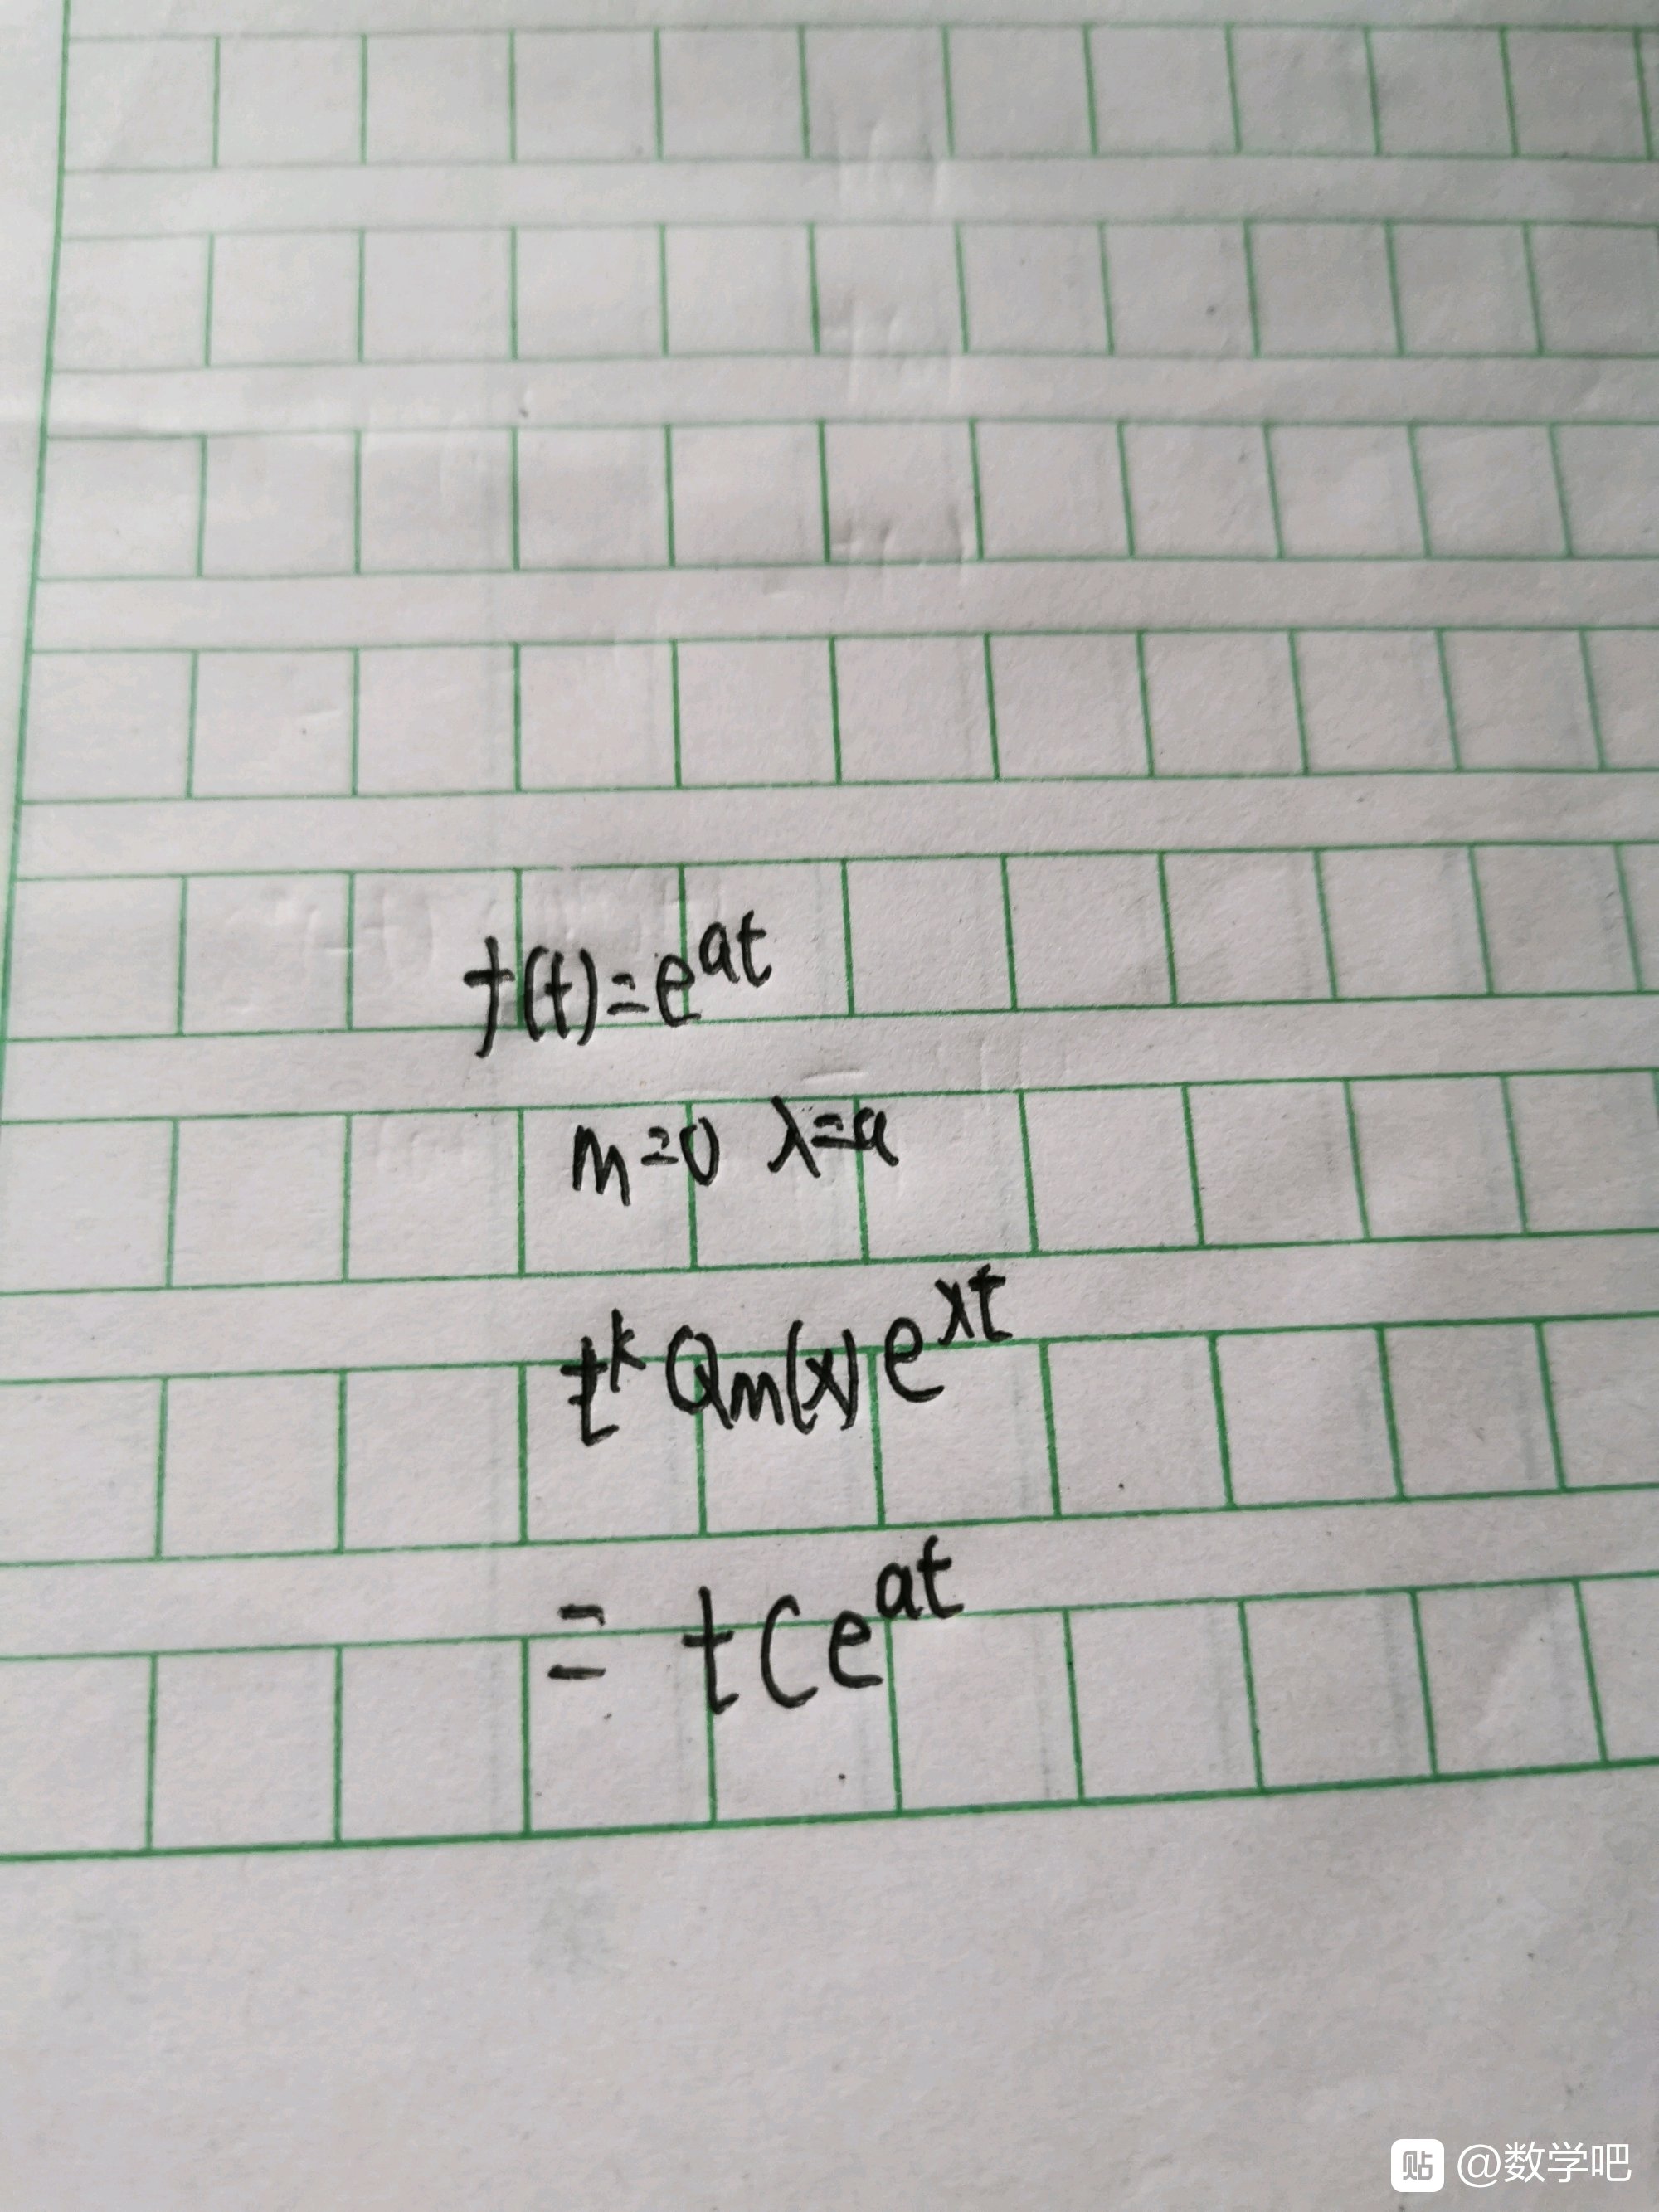 f(t)=e^{at}
m=0 λ=a
t^k Qm(x) e^{λt}
= t C e^{at}
贴 @数学吧